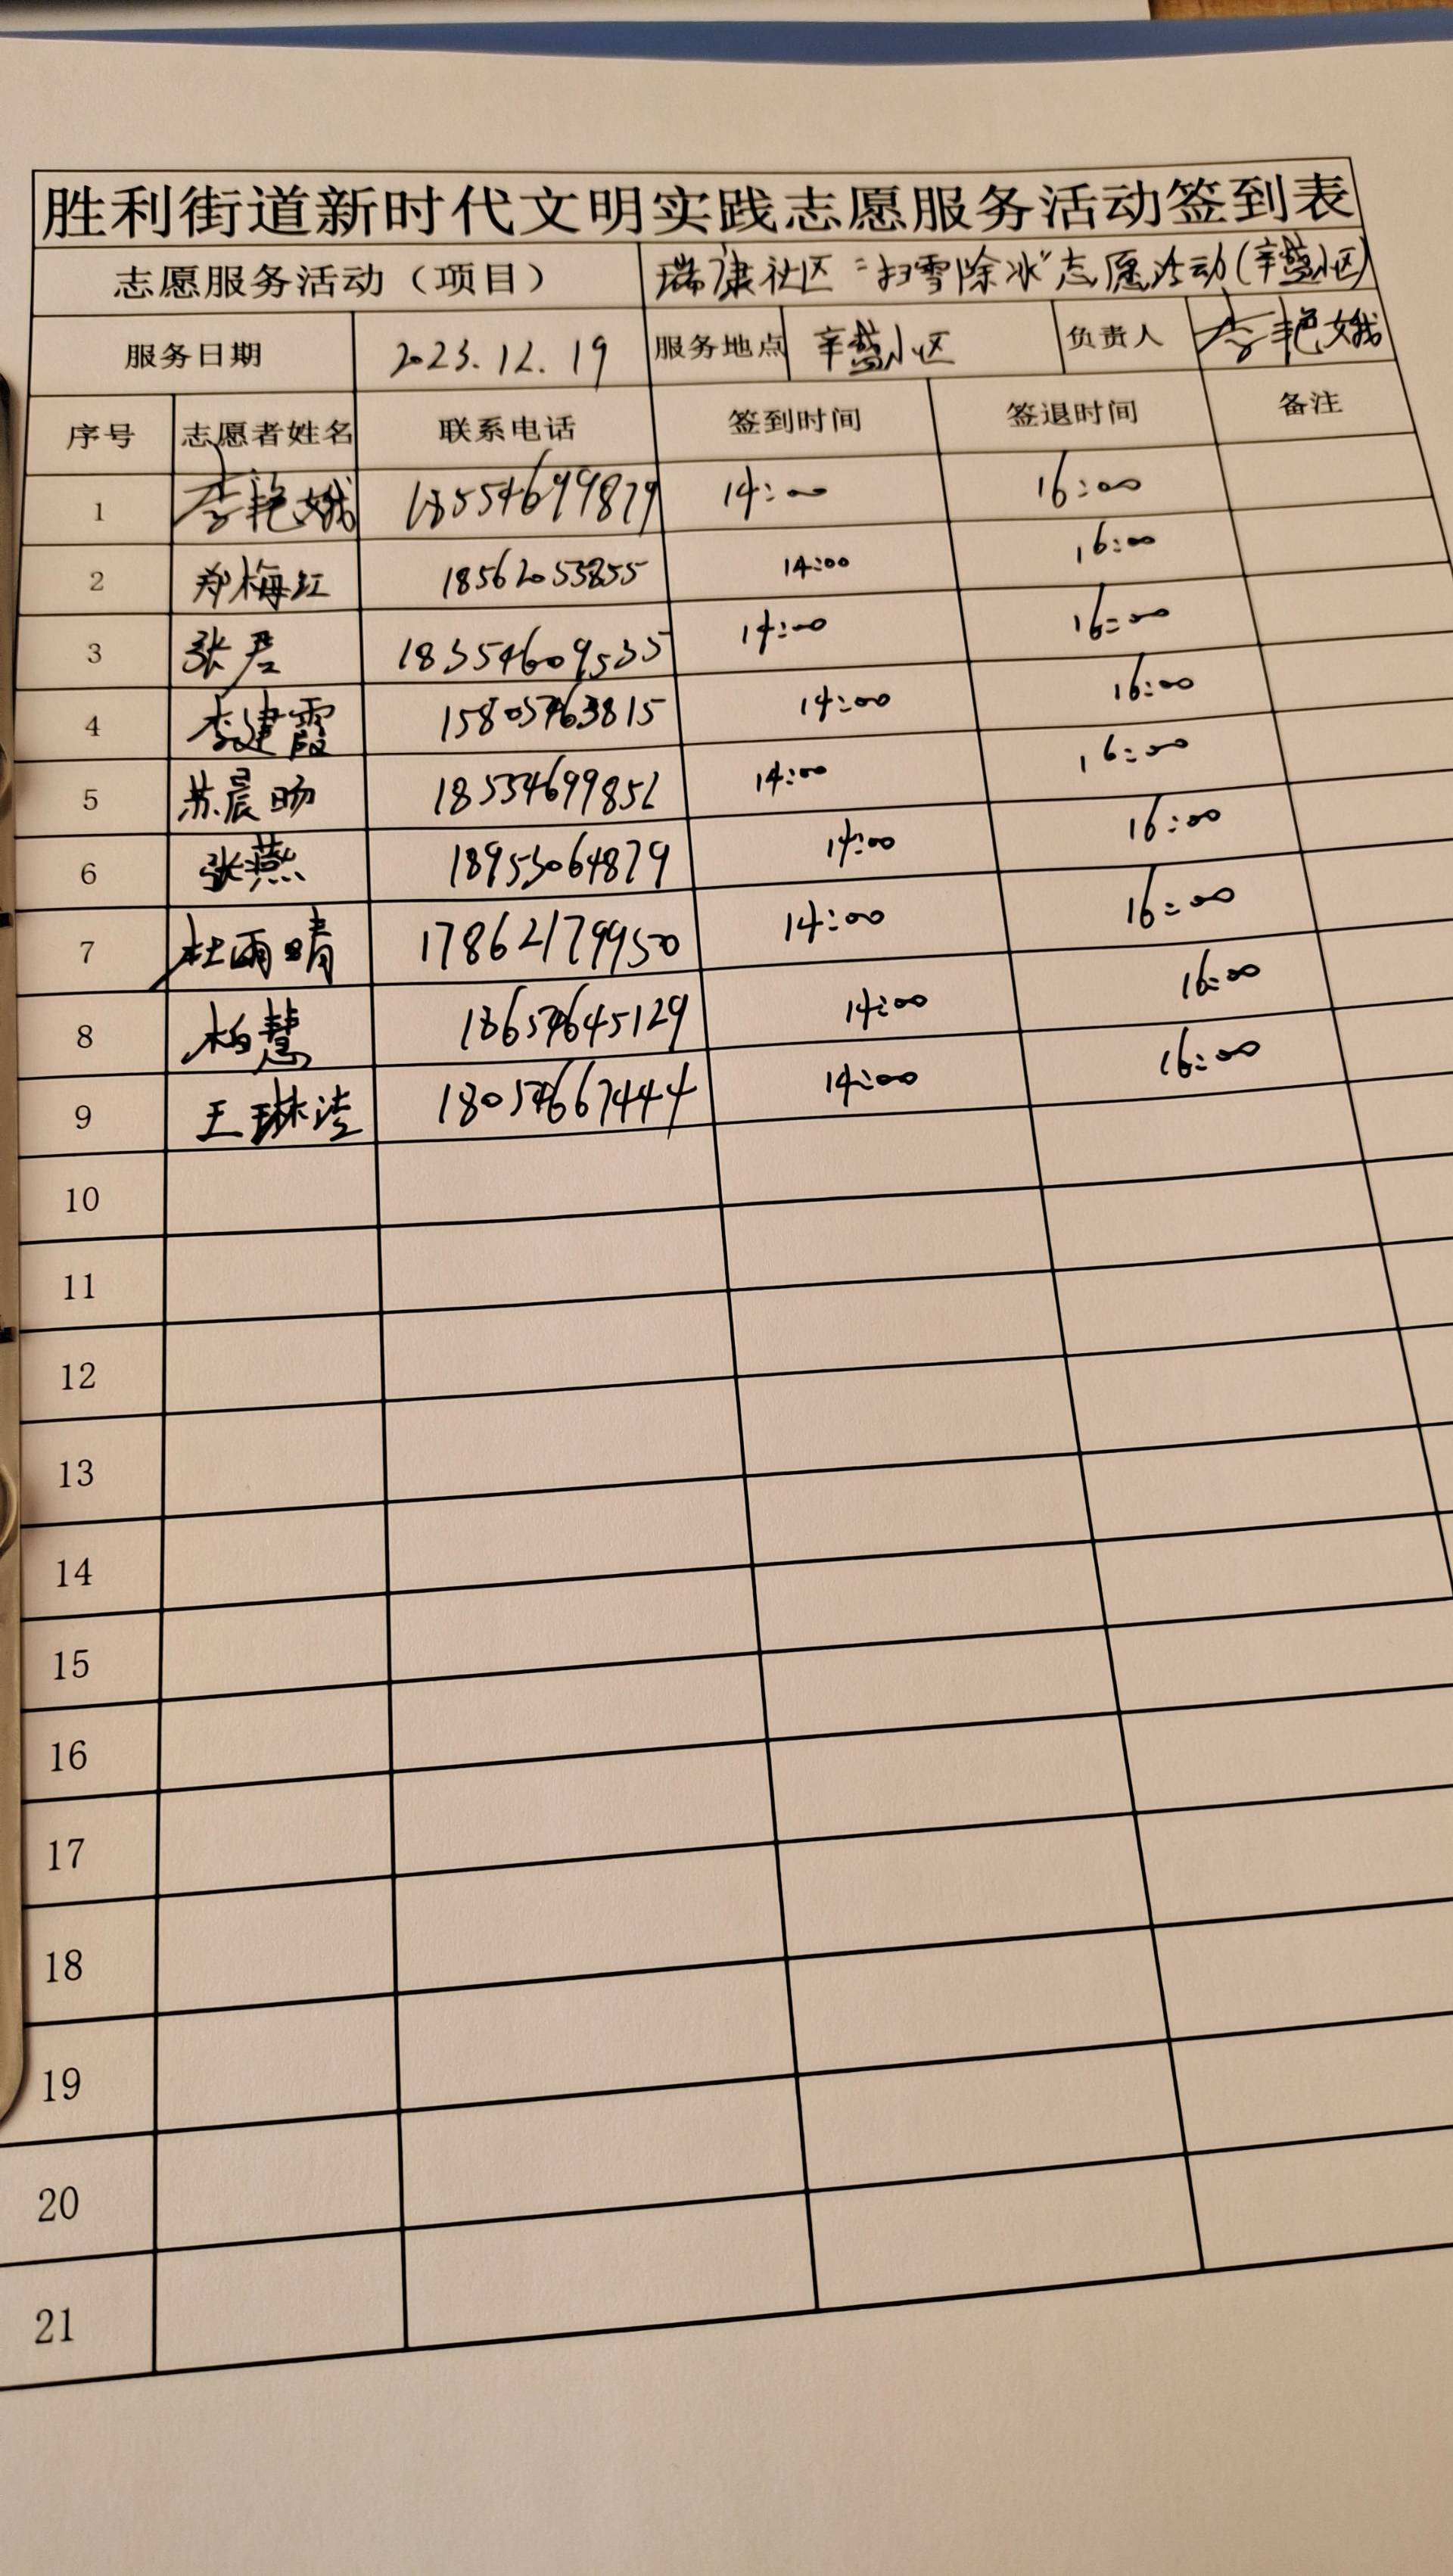 胜利街道新时代文明实践志愿服务活动签到表
志愿服务活动（项目） 瑞康社区“扫雪除冰”志愿活动(辛盛小区)
服务日期 2023.12.19 服务地点 辛盛小区 负责人 李艳娥
序号 志愿者姓名 联系电话 签到时间 签退时间 备注
1 李艳娥 18554699879 14:00 16:00
2 郑梅红 18562053855 14:00 16:00
3 张君 18354609535 14:00 16:00
4 李建霞 15805463815 14:00 16:00
5 苏晨旸 18554699851 14:00 16:00
6 张燕 18953064879 14:00 16:00
7 杜雨晴 17862179950 14:00 16:00
8 柏慧 18654645129 14:00 16:00
9 王琳洁 18054667444 14:00 16:00
10
11
12
13
14
15
16
17
18
19
20
21